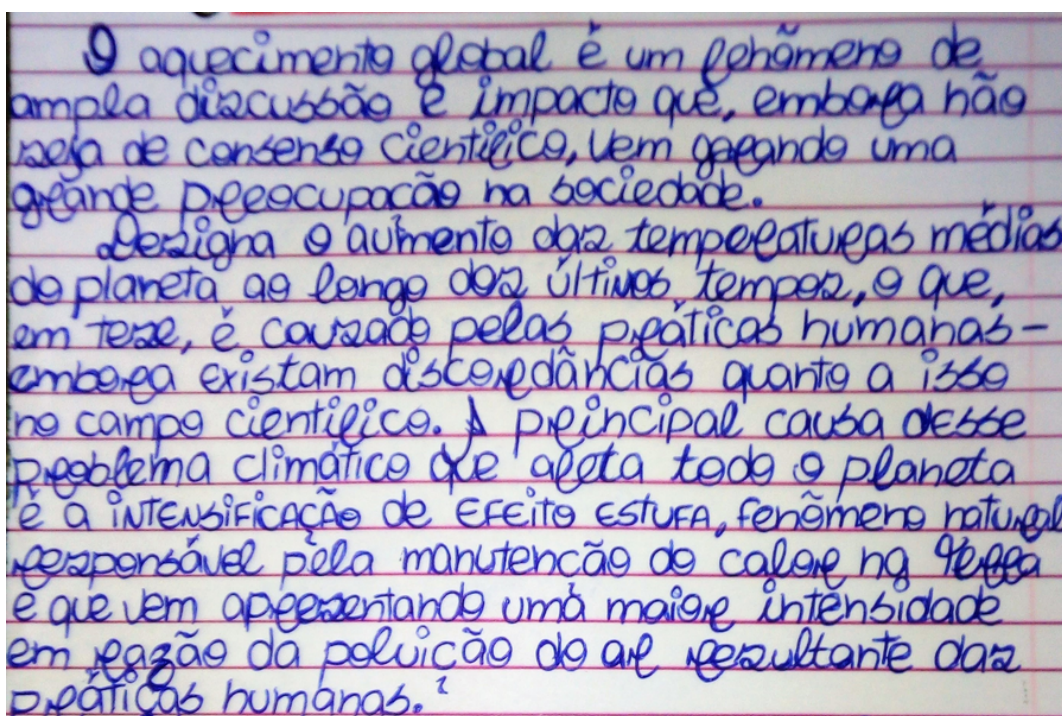 O aquecimento global é um fenômeno de
ampla discussão e impacto que, embora não
seja de consenso científico, vem gerando uma
grande preocupação na sociedade.
Designa o aumento das temperaturas médias
do planeta ao longo dos últimos tempos, o que,
em tese, é causado pelas práticas humanas –
embora existam discordâncias quanto a isso
no campo científico. A principal causa desse
problema climático que afeta todo o planeta
é a INTENSIFICAÇÃO do EFEITO ESTUFA, fenômeno natural
responsável pela manutenção do calor na Terra
e que vem apresentando uma maior intensidade
em razão da poluição do ar resultante das
práticas humanas.